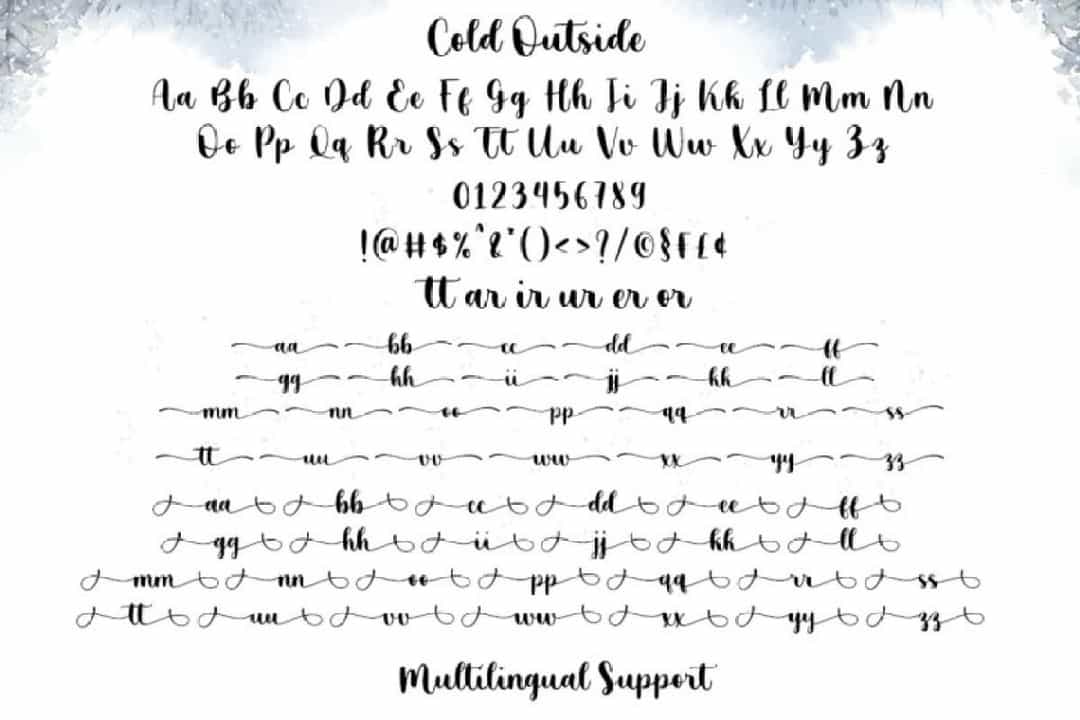 Cold Outside
Aa Bb Cc Dd Ee Ff Gg Hh Ii Jj Kk Ll Mm Nn
Oo Pp Qq Rr Ss Tt Uu Vv Ww Xx Yy Zz
0123456789
!@#$%^&*()<>?/©§₣£¢
tt ar ir ur er or
aa bb cc dd ee ff
gg hh ii jj kk ll
mm nn oo pp qq rr ss
tt uu vv ww xx yy zz
aa bb cc dd ee ff
gg hh ii jj kk ll
mm nn oo pp qq rr ss
tt uu vv ww xx yy zz
Multilingual Support